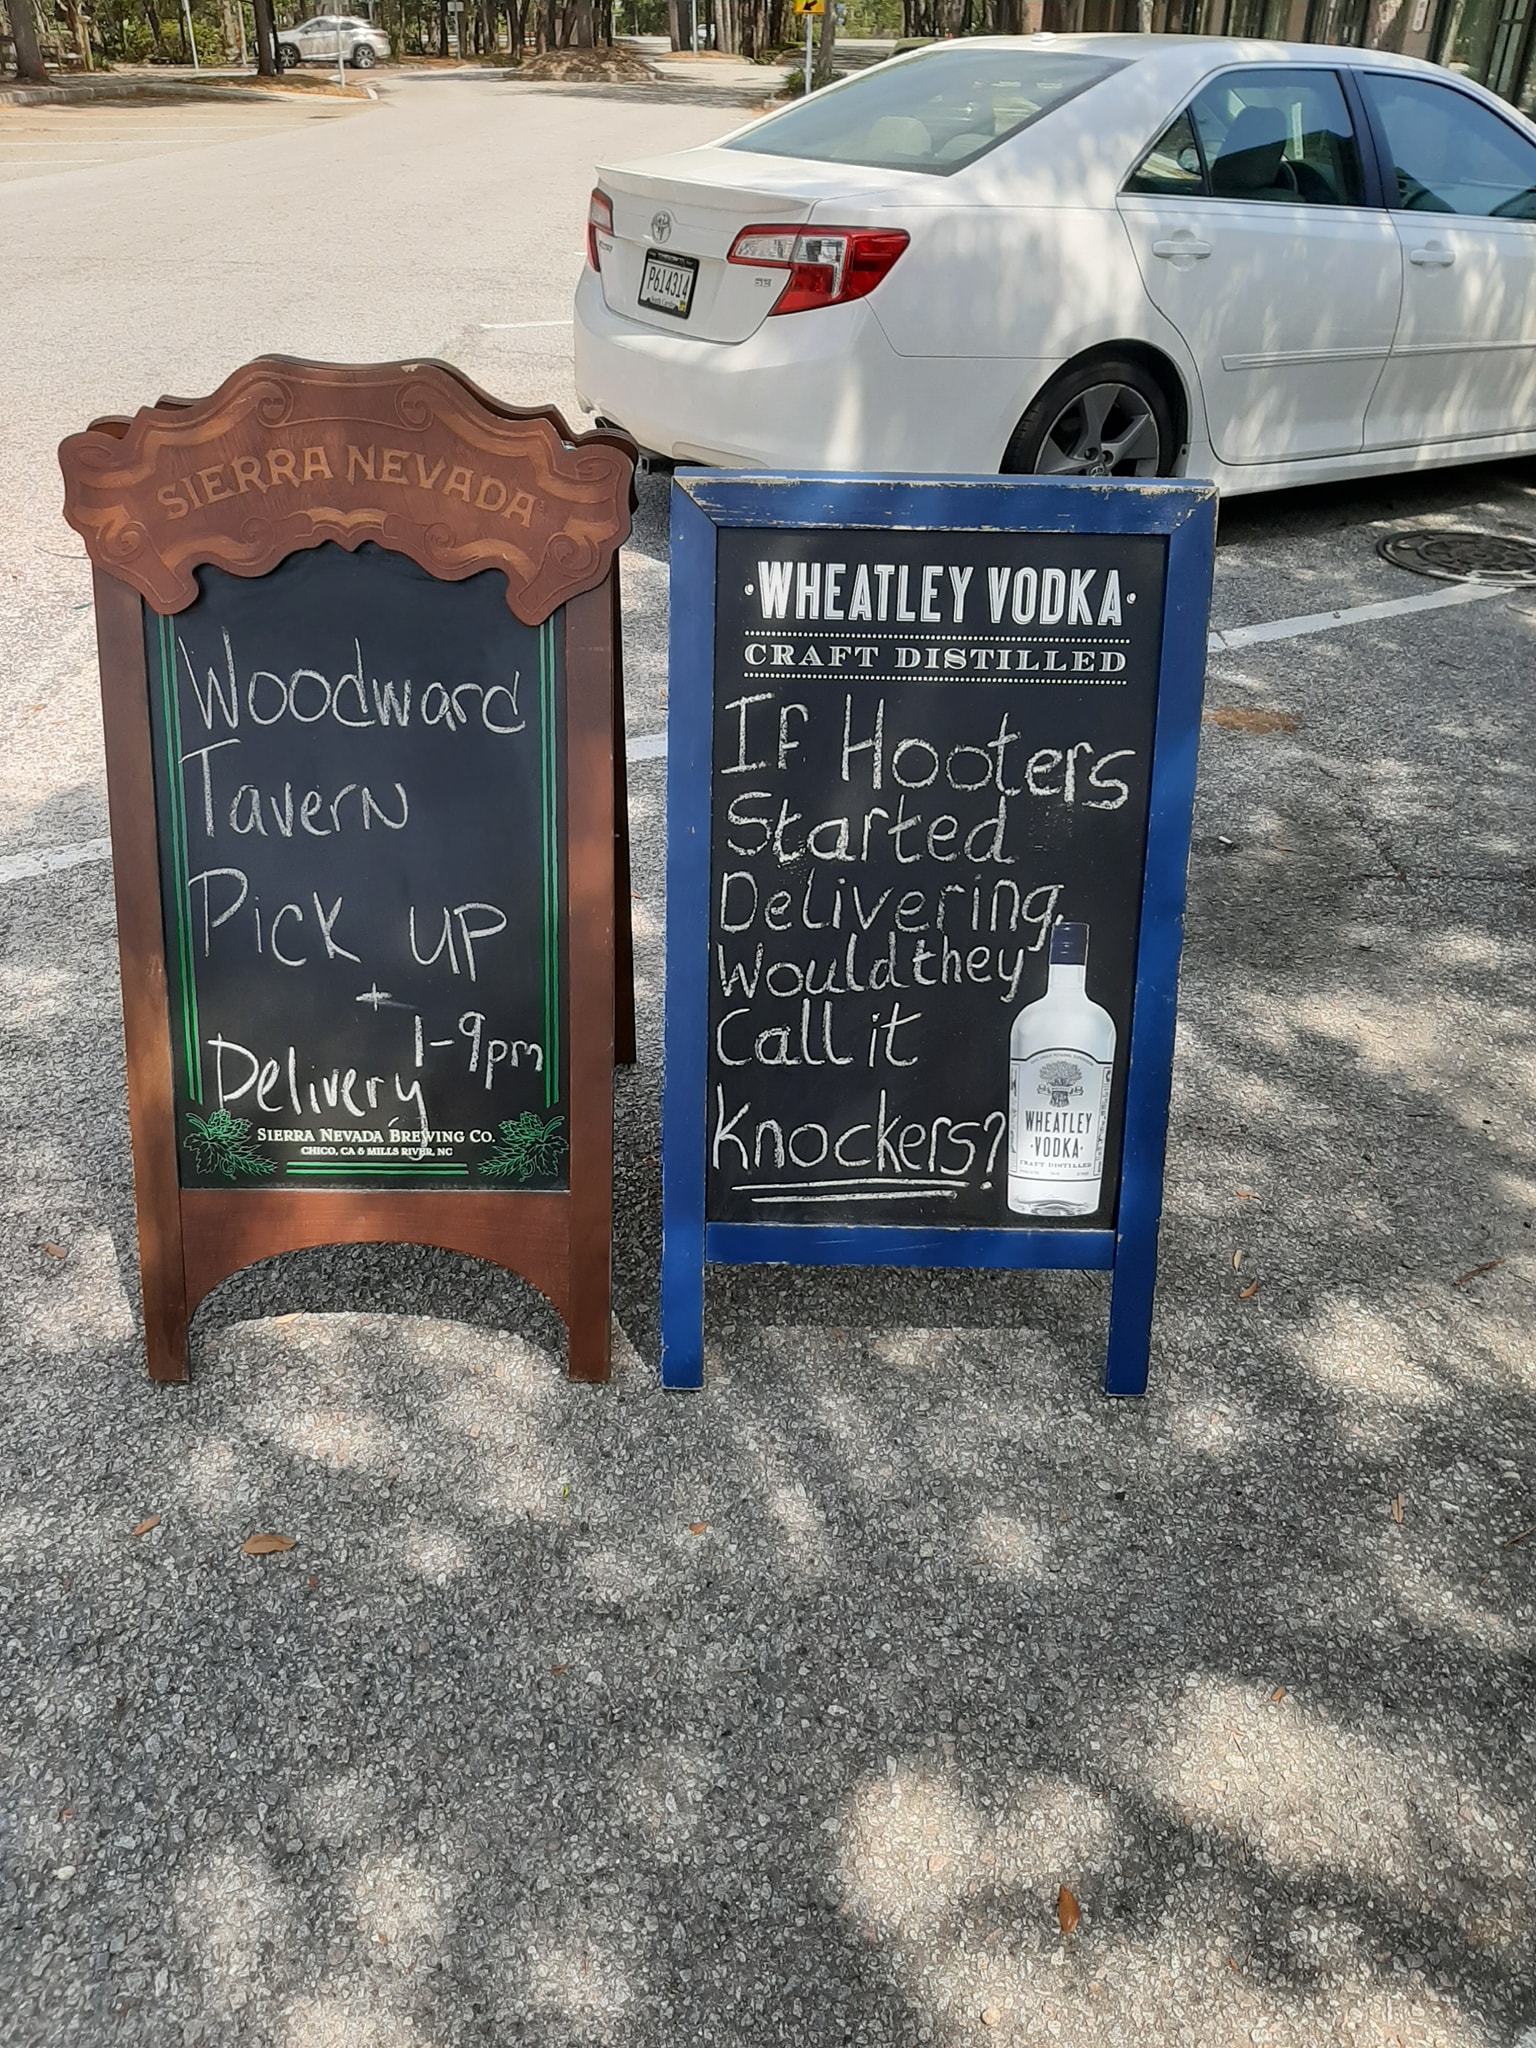 SIERRA NEVADA
Woodward
Tavern
Pick up
+
Delivery 1-9pm
SIERRA NEVADA BREWING CO.
CHICO, CA & MILLS RIVER, NC
·WHEATLEY VODKA·
CRAFT DISTILLED
If Hooters
Started
Delivering,
Would they
Call it
Knockers?
WHEATLEY
·VODKA·
CRAFT DISTILLED
P614314
SE